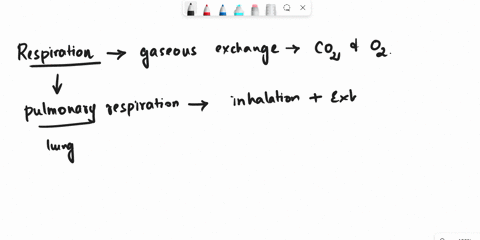 Respiration → gaseous exchange → CO₂ & O₂.
↓
pulmonary respiration → inhalation + Exh
lung